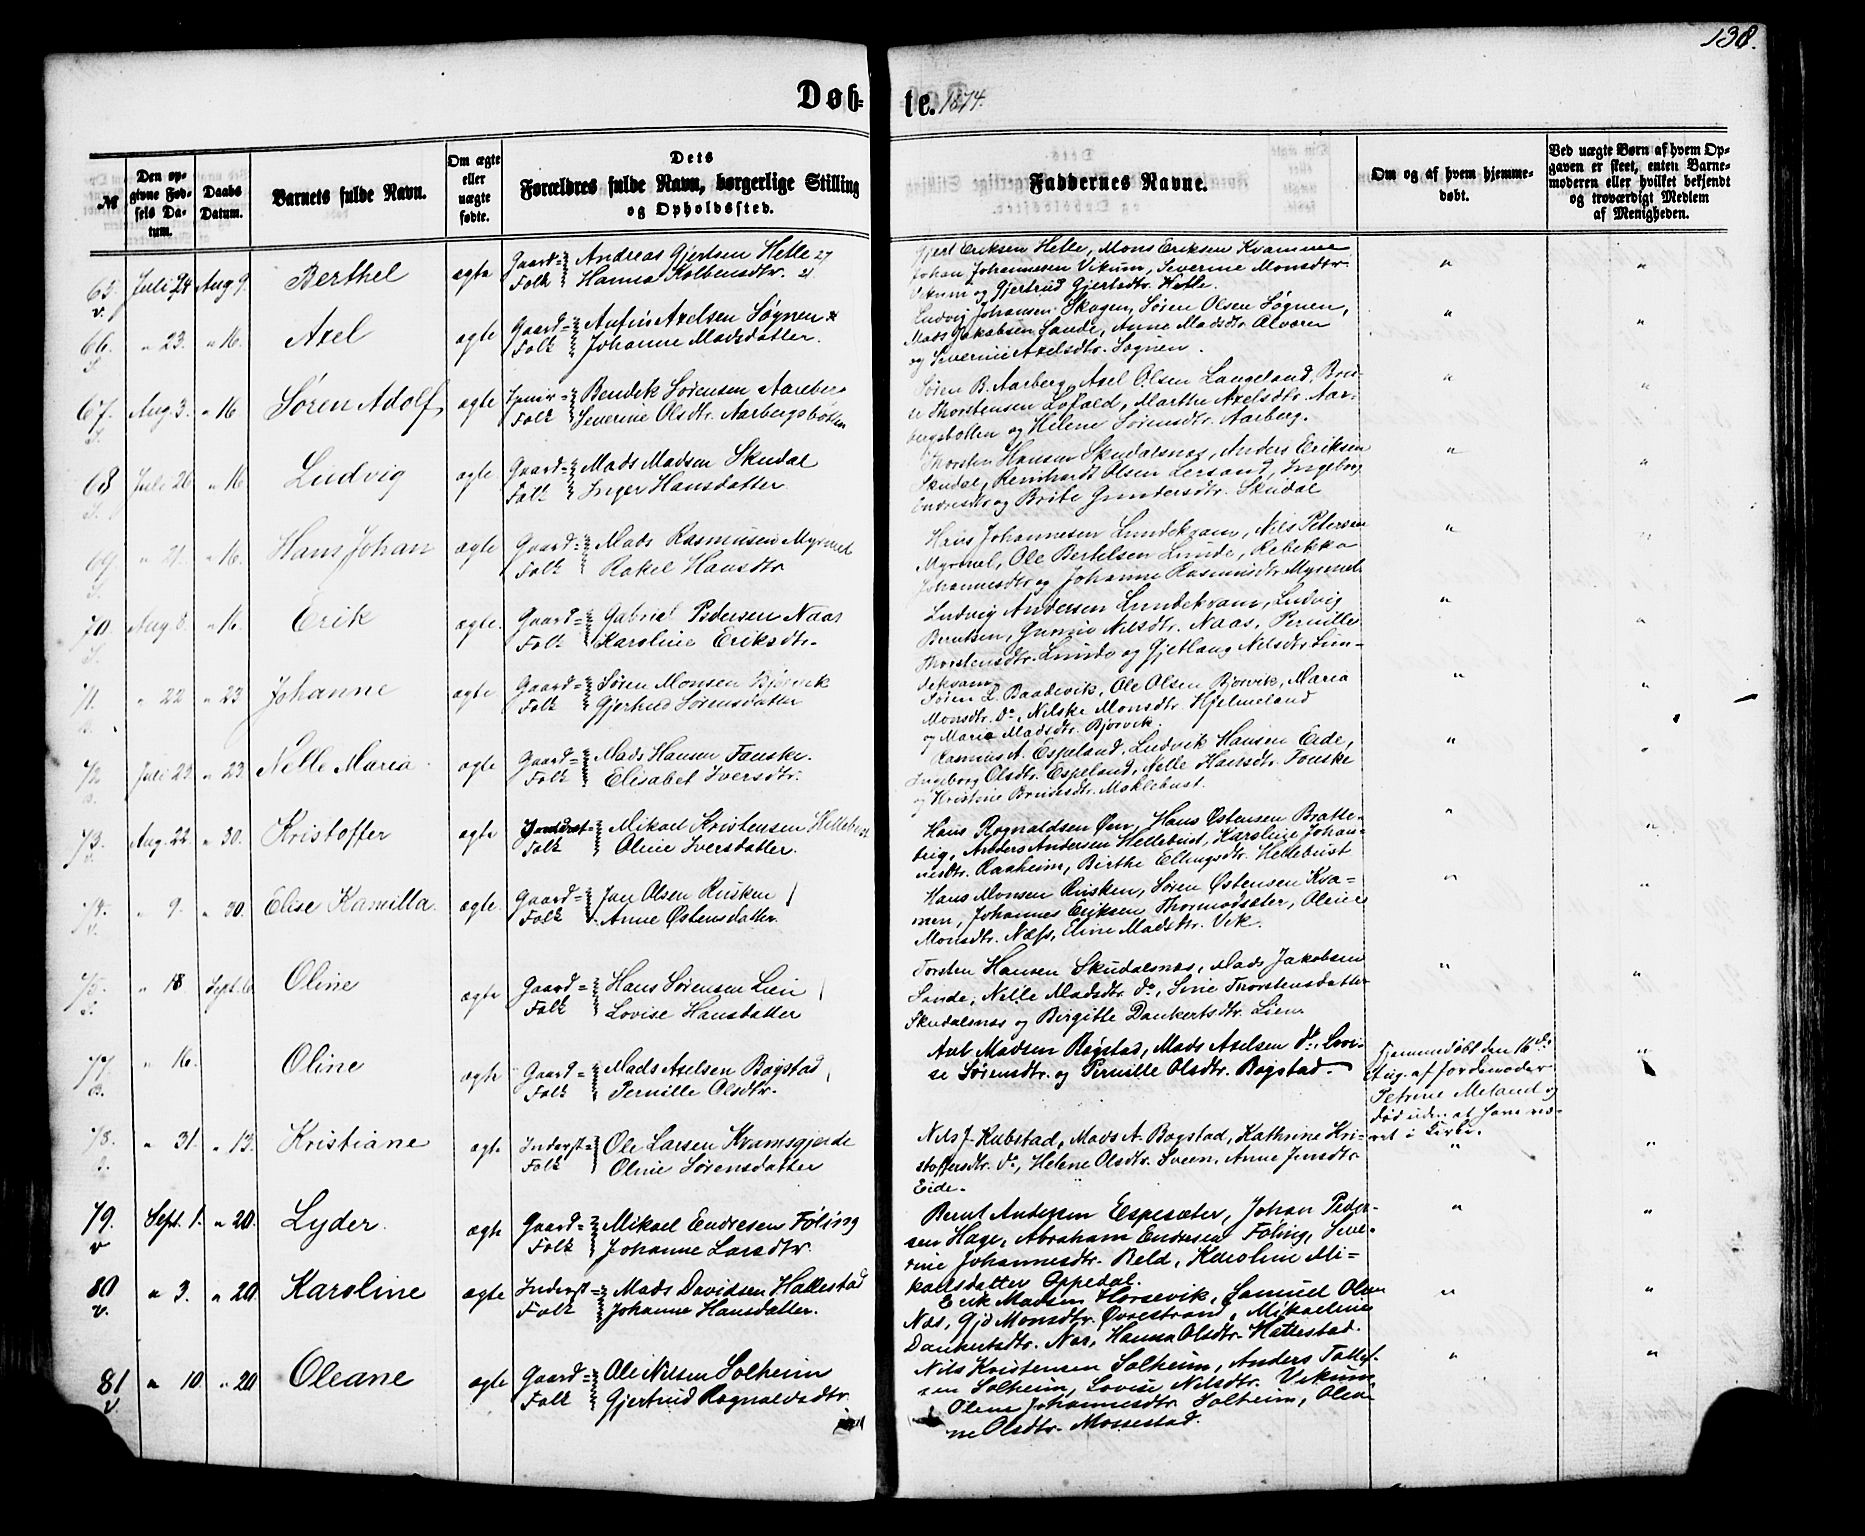 138.
Døb= te. 1874.
№
Den opgivne Fødsels Datum.
Daabs Datum.
Barnets fulde Navn.
Om ægte eller uægte fødte.
Dets Forældres fulde Navn, borgerlige Stilling og Opholdssted.
Faddernes Navne.
Om og af hvem hjemmedøbt.
Ved uægte Børn af hvem Opgaven er skeet, enten Barnemoderen eller hvilket bekjendt og troværdigt Medlem af Menigheden.
65. Juli 24 Aug 9. Berthel ægte Gaard= Folk Andreas Gjertsen Helle 27 Hanna Kolbensdtr. 21
Gjert Eriksen Helle, Mons Eriksen Kvamme
Johan Johannesen Vikum, Severine Monsdtr.
Vikum og Gjertrud Gjertsdtr. Helle. " "
66. " 23. " 16. Axel ægte Gaard= Folk Anfin Axelsen Søgnen Johanne Madsdatter.
Ludvig Johansen Skagen, Søren Olsen Søgnen,
Mads Jakobsen Sande, Anne Madsdtr. Alvøren
og Severine Axelsdtr. Søgnen. " "
67. Aug. 3. " 16 Søren Adolf ægte Folk Bendik Sørensen Aareberg Severine Olsdtr. Aarbergsbotten
Søren B. Aarberg, Axel Olsen Langeland,
Thorstensen Lofald, Marthe Axelsdtr. Aar-
bergsbotten og Helene Sørensdtr. Aarberg. " "
68 Juli 26 " 16 Ludvig ægte Gaard= Folk Mads Madsen Skudal Inger Hansdatter
Thorsten Hansen Skudalsnæs, Anders Eriksen
Skudal, Reinhardt Olsen Lersand, Ingeborg
og Brite Gundersdtr. Skudal " "
69 " 21. " 16. Hans Johan ægte Gaard= Folk Mads Rasmusen Myrmel Rakel Hansdtr
Hans Johannesen Lundekvam, Nils Petersen
Myrmel, Ole Bertelsen Lunde, Rebekka
Johannesdtr og Johanne Rasmusdtr Myrmel. " "
70 Aug 8. " 16. Erik ægte. Gaard= Folk Gabriel Pedersen Naas Karoline Eriksdtr.
Ludvig Andersen Lundekvam, Ludvig
Berntsen, Gunnie Nilsdtr. Naas, Pernille
Thorstensdtr. Lunde og Gjetlaug Nilsdtr Lun-
dekvam. " "
71. " 22 " 23 Johanne ægte Gaard= Folk Søren Monsen Bjørvik Gjertrud Sørensdatter
Søren L. Baadevik, Ole Olsen Bjørvik, Maria
Monsdtr. Do, Nilske Monsdtr. Hjelmeland
og Maria Madsdtr. Bjørvik. " "
72 Juli 25 " 23. Nelle Maria. ægte Gaard= Folk Mads Hansen Fauske. Elisabet Iversdtr.
Rasmus A. Espeland, Ludvik Hansen Eide,
Ingeborg Olsdtr. Espeland, Nelle Hansdtr. Fauske
og Kristine Madsdtr. Møklebust. " "
73. Aug. 22. " 30. Kristoffer ægte Inderst= Folk Mikael Kristensen Hellebust Oline Iversdatter.
Hans Rognaldsen Øen, Hans Østensen Bratte-
brig, Anders Andersen Hellebust, Karoline Johan-
nesdtr. Raaheim, Birthe Ellingsdtr. Hellebust " "
74. " 9. " 30. Elise Kamilla. ægte. Gaard= Folk Jan Olsen Risken Anne Østensdatter.
Hans Monsen Risken, Søren Østensen Kva-
men, Johannes Eriksen Thormodsæter, Oline
Monsdtr. Næss, Eline Madsdtr. Vik. " "
75. " 18 Sept. 6. Oline ægte Gaard= Folk Hans Sørensen Lien Lovise Hansdatter
Torsten Hansen Skudalsnæs, Mads Jakobsen
Sande, Nelle Madsdtr. Do, Sine Thorstensdatter
Skudalsnæs og Birgitte Dankertsdtr. Lien. " "
77. " 16. Oline ægte Gaard= Folk Mads Axelsen Bøgstad Pernille Olsdtr.
Axel Madsen Bøgstad, Mads Axelsen Do, Lovi-
se Sørensdtr. og Pernille Olsdtr. Bøgstad.
Hjemmedøbt den 16de
Aug. af Jordemoder
Petrine Meland og
død uden at have væ-
ret i Kirke. "
78. " 31. " 13. Kristiane ægte Inderst= Folk Ole Larsen Kvamsgjerde Oline Sørensdatter
Nils J. Rubstad, Mads A. Bøgstad, Kathrine Kri-
stoffersdtr. Do, Helene Olsdtr. Sveen, Anne Jensdtr
Eide. " "
79. Sept. 1. " 20. Lyder. ægte Gaard= Folk Mikael Endresen Føling Johanne Larsdtr.
Bernt Andersen Espesæter, Johan Peder-
sen Hage, Abraham Endresen Føling, Seve-
rine Johannesdtr. Reld, Karoline Mi-
kaelsdatter Oppedal. " "
80 " 3. " 20. Karoline ægte Inderst= Folk Mads Davidsen Hattestad Johanne Hansdatter.
Erik Madsen Horsevik, Samuel Olsen
Næs, Gjø Monsdtr. Øvrestrand, Mikaeline
Dankertsdtr. Næs, Hanna Olsdtr. Hattestad. " "
81 " 10 " 20 Oleane ægte Gaard= Folk Ole Nilsen Solheim Gjertrud Rognaldsdtr.
Nils Kristensen Solheim, Anders Tollef-
sen Solheim, Lovise Nilsdtr. Vikum
Oline Johannesdtr. Solheim, Olea-
ne Olsdtr. Mossestad. " "